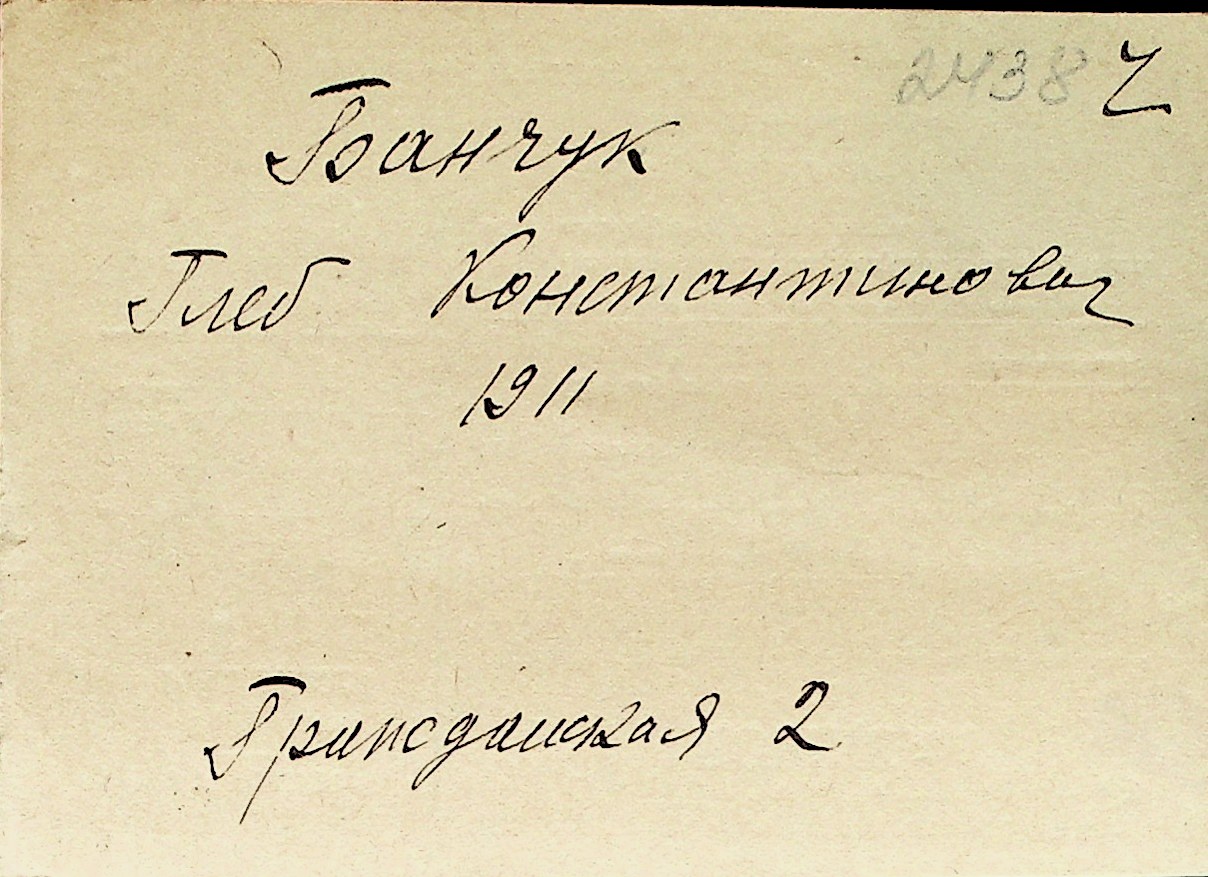 2438 Ч
Банчук
Глеб Константинович
1911
Гражданская 2